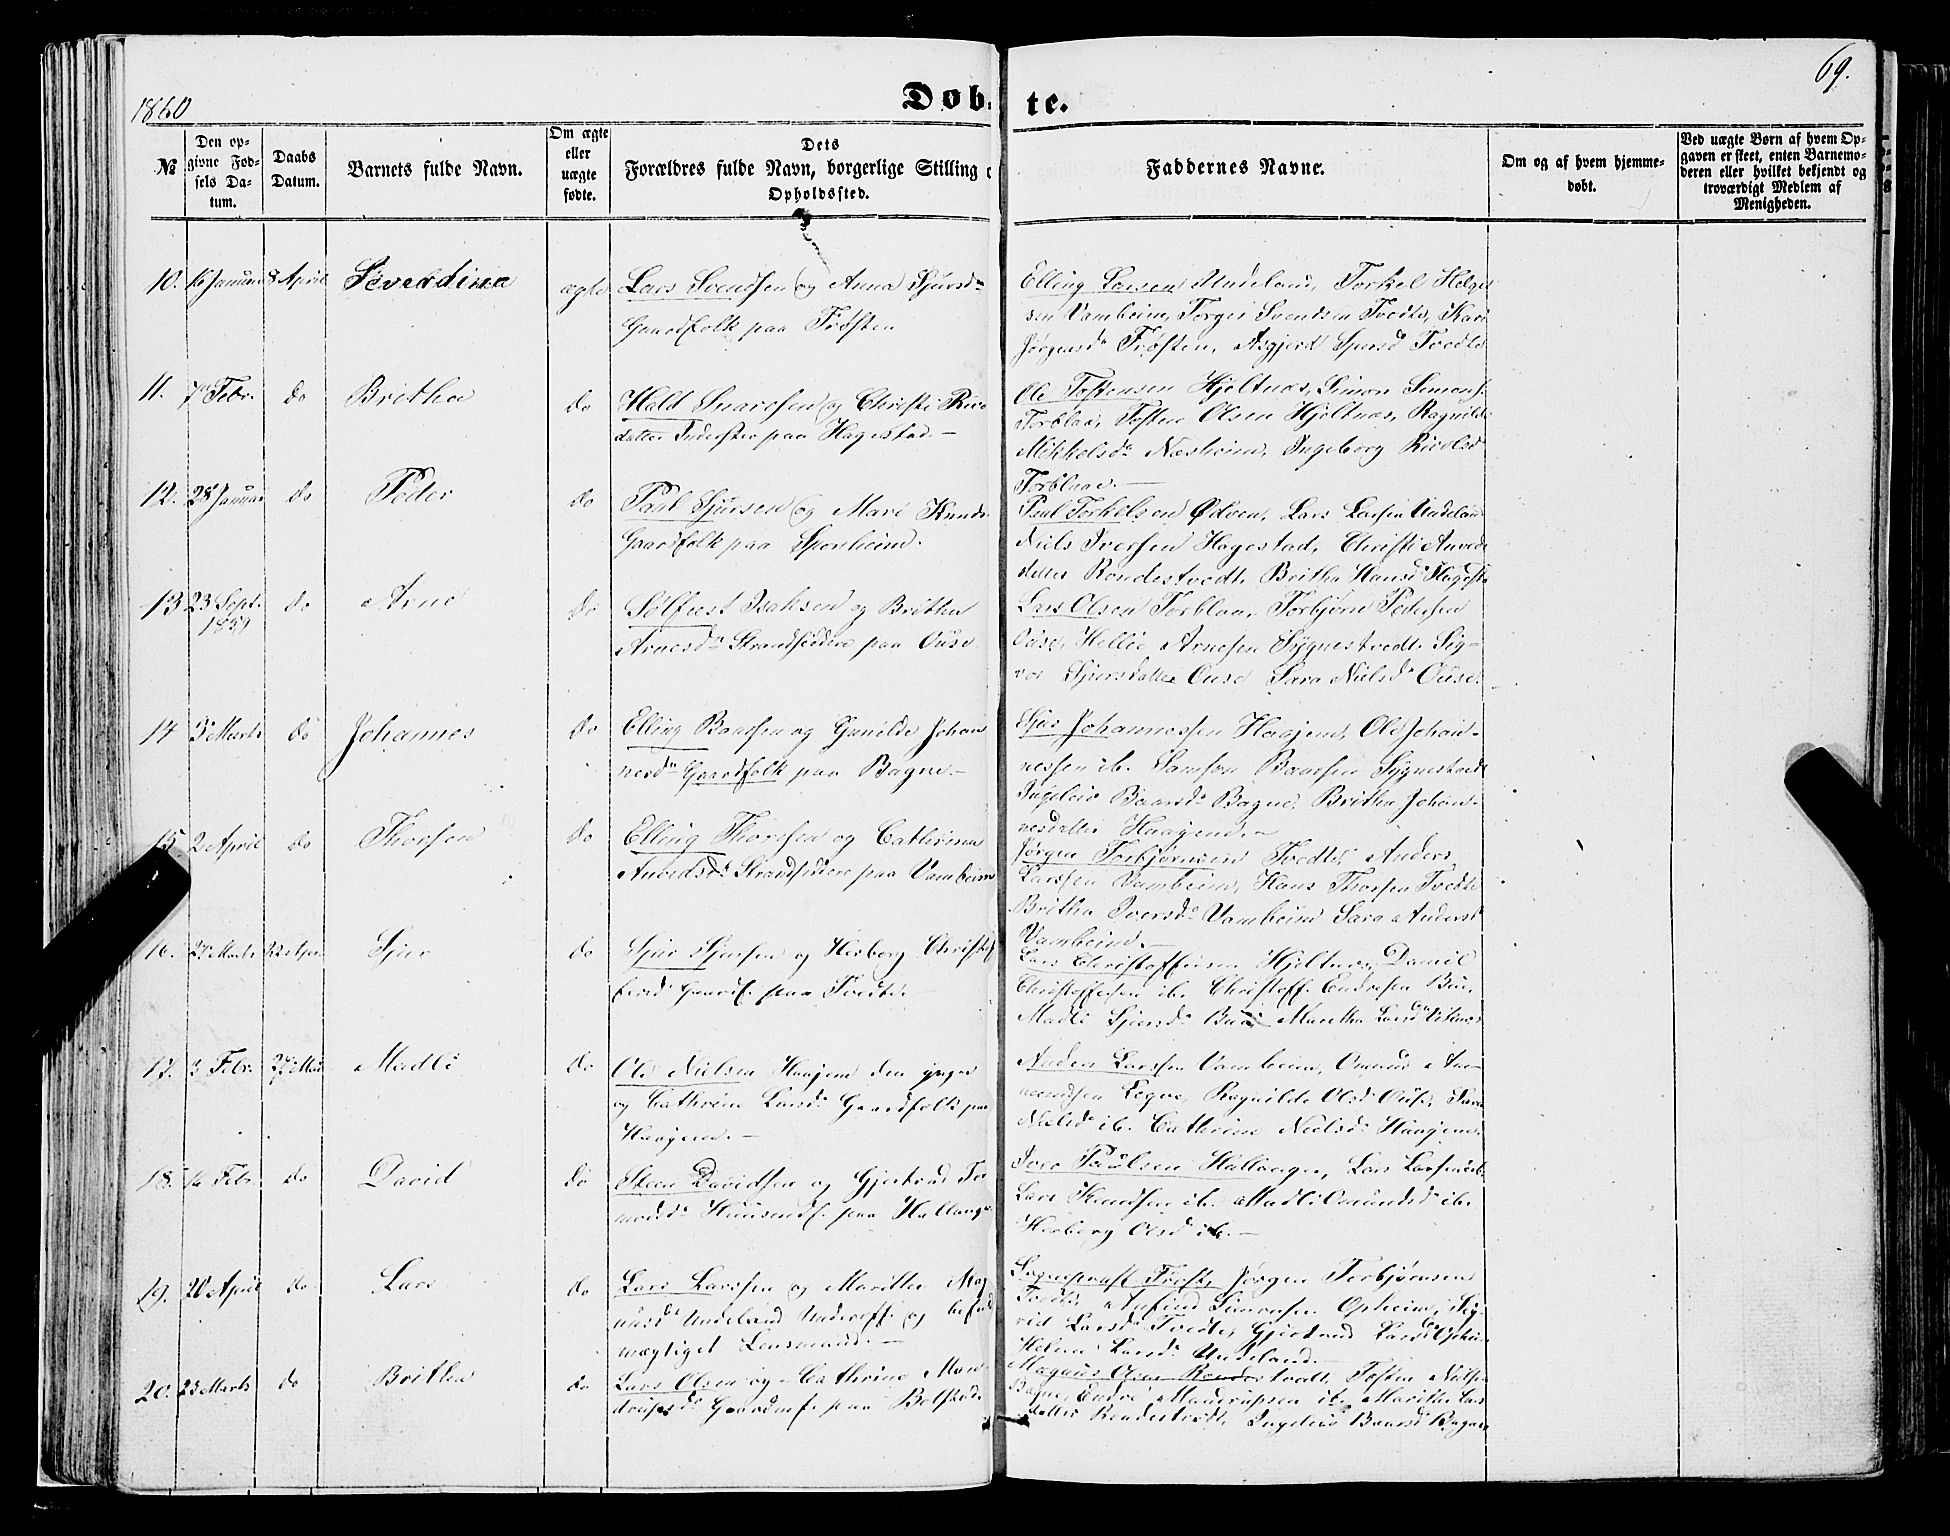 1860
69.
Døb-
te.
№
Den op-
givne Fød-
sels Da-
tum.
Daabs
Datum.
Barnets fulde Navn.
Om ægte
eller
uægte
fødte.
Dets
Forældres fulde Navn, borgerlige Stilling o
Opholdssted.
Faddernes Navne.
Om og af hvem hjemme-
døbt.
Ved uægte Børn af hvem Op-
gaven er skeet, enten Barnemo-
deren eller hvilket bekjendt og
troværdigt Medlem af
Menigheden.
10. 16 Januar 8 April Siverdina ægte Lars Svendsen og Anna Sjursdr
Gaardfolk paa Trøften
Elling Larsen Undeland, Torkel Helge
sen Vambeim, Torger Svendsen Tvedte, Kari
Jørgensdr Trøften, Asgjerd Tvedte
11. 7de Febr. do Britha do Hald og Christi
datter Inderster paa Hagestad.
Ole Tostensen Hjeltnæs, Simon Simons.
Torblaa, Tosten Olsen Hjeltnæs, Ragnilde
Mikkelsdr Næsheim, Ingeborg
Torblaa.
12. 28 Januar do Peder do Paal Sjursen og Mari Knuds
Gaardfolk paa Sponheim.
Paul Torkelsen Ødven, Lars Larsen Undeland
Niels Iversen Hagestad, Christi
datter Rondestvedt, Britha Hansdr
13 23 Sept. do Arne do Sølfest Isaksen og Britha
1859
Arnesdr Strandsiddere paa Ouse
Lars Olsen Torblaa, Torbjørn Pedersen
Ouse, Arnesen Sygnestvedt, Sig-
vor Sjursdatter Ouse Sara Nielsdr Ouse.
14 3 Marts do Johannes do Elling Baardsen og Gunilde Johan
nesdr Gaardfolk paa Bagne.
Sjur Johannessen Haajem, Ole Johan-
nessen ib. Samson Baarsen Sygnestvedt
Baarsdr Bagne, Britha Johan-
nesdatter Haajem.
15 2 April do Thorsen do Elling Thorsen og Cathrina
Strandsiddere paa Vambeim
Jørgen Torbjørnsen Tvedte, Anders
Larssen Vambeim, Hans Thorsen Tvedte
Britha Iversdr Vambeim Sara Andersd
Vambeim.
16. 27 Marts 22 Apr. Sjur do Sjur Sjursen og Herborg Christof
fersd Gaardf. paa Tvedte.
Lars Christoffersen Hjeltnæs, Daniel
Christoffersen ib. Christoff. Endresen Bue,
Madli Sjursdr Bue, Maretha Larsdr
17. 3 Febr. 27 Mai Madli do Ole Nielsen Haajem den yngre
og Cathrine Larsdr Gaardfolk paa
Haajem.
Anders Larssen Vambeim, Omund Am-
undsen Legve, Ragnilde Olsdr Ouse, Sara
Nielsdr ib. Cathrine Nielsdr Haajem.
18. Febr. do David do Steen Davidsen og Gjertrud
Huusmdf. paa Hallange
Iver Paulsen Hallanger, Lars Larsen ib.
Lars Knudsen ib. Madli Omundsdr ib.
Herborg Olsd ib.
19. 20 April do Lars do Lars Larssen og Maritta Mag
nusdr Undeland Underoff. og befuld
mægtiget Lensmand.
Sogneprest Frost, Jørgen Torbjørnsen
Tvedte, Simonsen Opheim, Sig-
rid Larsdr Tvedte, Gjertrud Larsdr
Helena Larsdr Undeland.
20. 23 Marts do Britha do Lars Olsen og Cathrine
Gaardmf. paa Bolstad
Magnus Olsen Rondestvedt, Tosten Nielsen
Bagne, Endre ib. Maritha Lars
datter Rondestvedt, Baarsdr Bagne